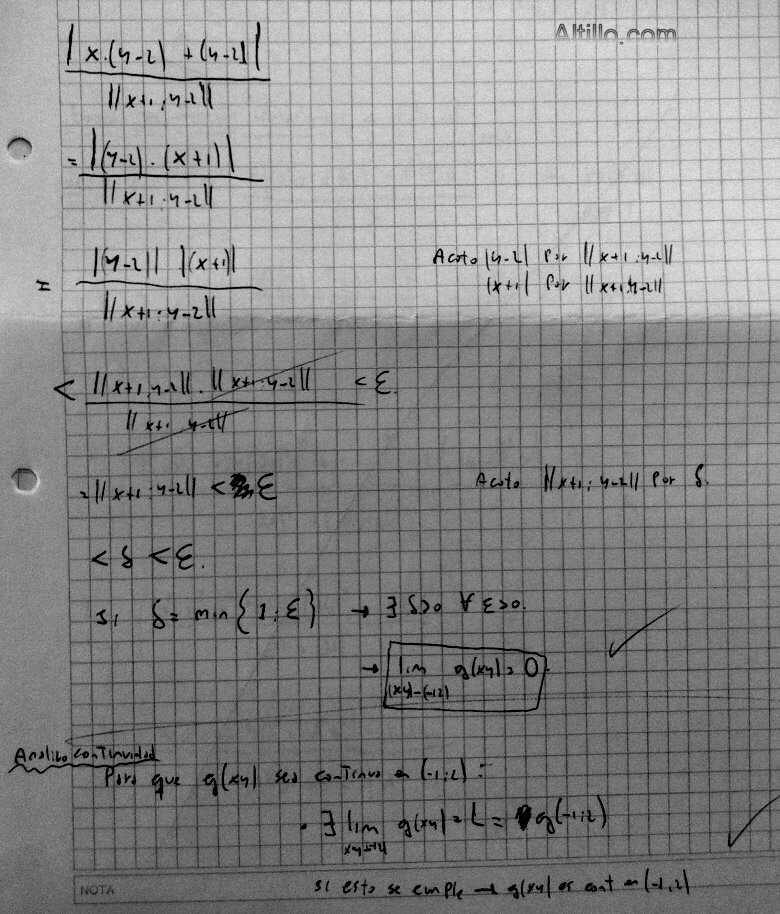 Altillo.com
|x.(y-2) + (y-2)|
||x+1; y-2||
= |(y-2) . (x+1)|
||x+1; y-2||
= |(y-2)| |(x+1)|
||x+1; y-2||
Acoto |y-2| Por ||x+1; y-2||
|x+1| Por ||x+1; y-2||
< ||x+1; y-2|| . ||x+1; y-2|| < ε.
||x+1; y-2||
= ||x+1; y-2|| < ε
Acoto ||x+1; y-2|| Por δ.
< δ < ε.
Si δ = min {1; ε} → ∃ δ>0 ∀ ε>0.
→ lim g(xy) = 0
(xy)→(-1,2)
Analizo continuidad
Para que g(xy) sea continua en (-1;2) :
• ∃ lim g(xy) = L = g(-1;2)
si esto se cumple → g(xy) es cont en (-1,2)
NOTA